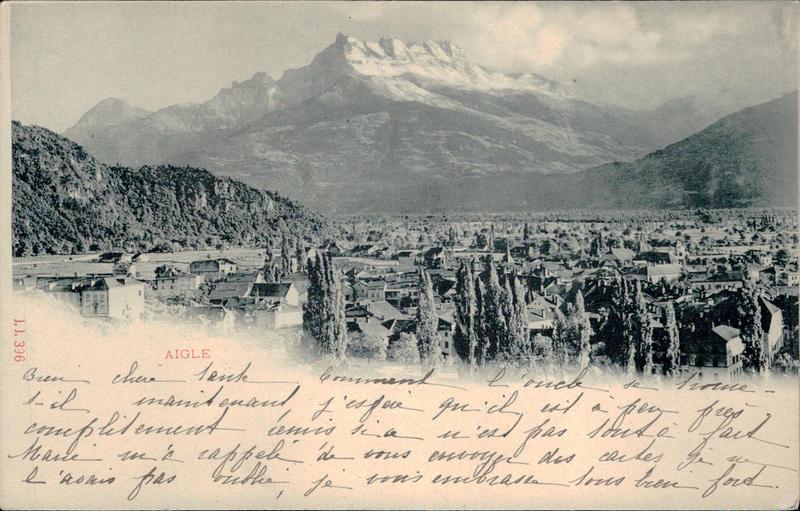 J.J. 396
AIGLE
Bien chère Tante Comment l'oncle se trouve-
t-il maintenant j'espère qu'il est à peu près
complètement remis si ce n'est pas tout à fait
Marie m'a rappelé de vous envoyer des cartes je ne
l'avais pas oublié, je vous embrasse tous bien fort.